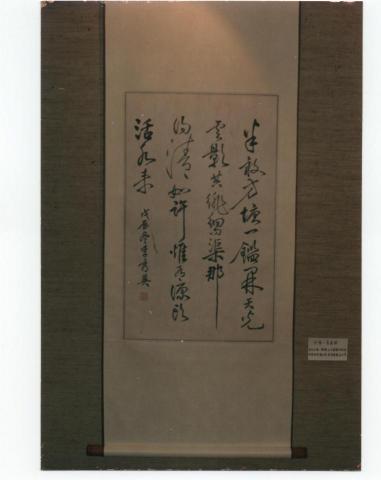 半畝方塘一鑑開天光
雲影共徘徊問渠那
得清如許惟有源頭
活水來
戊辰冬李英